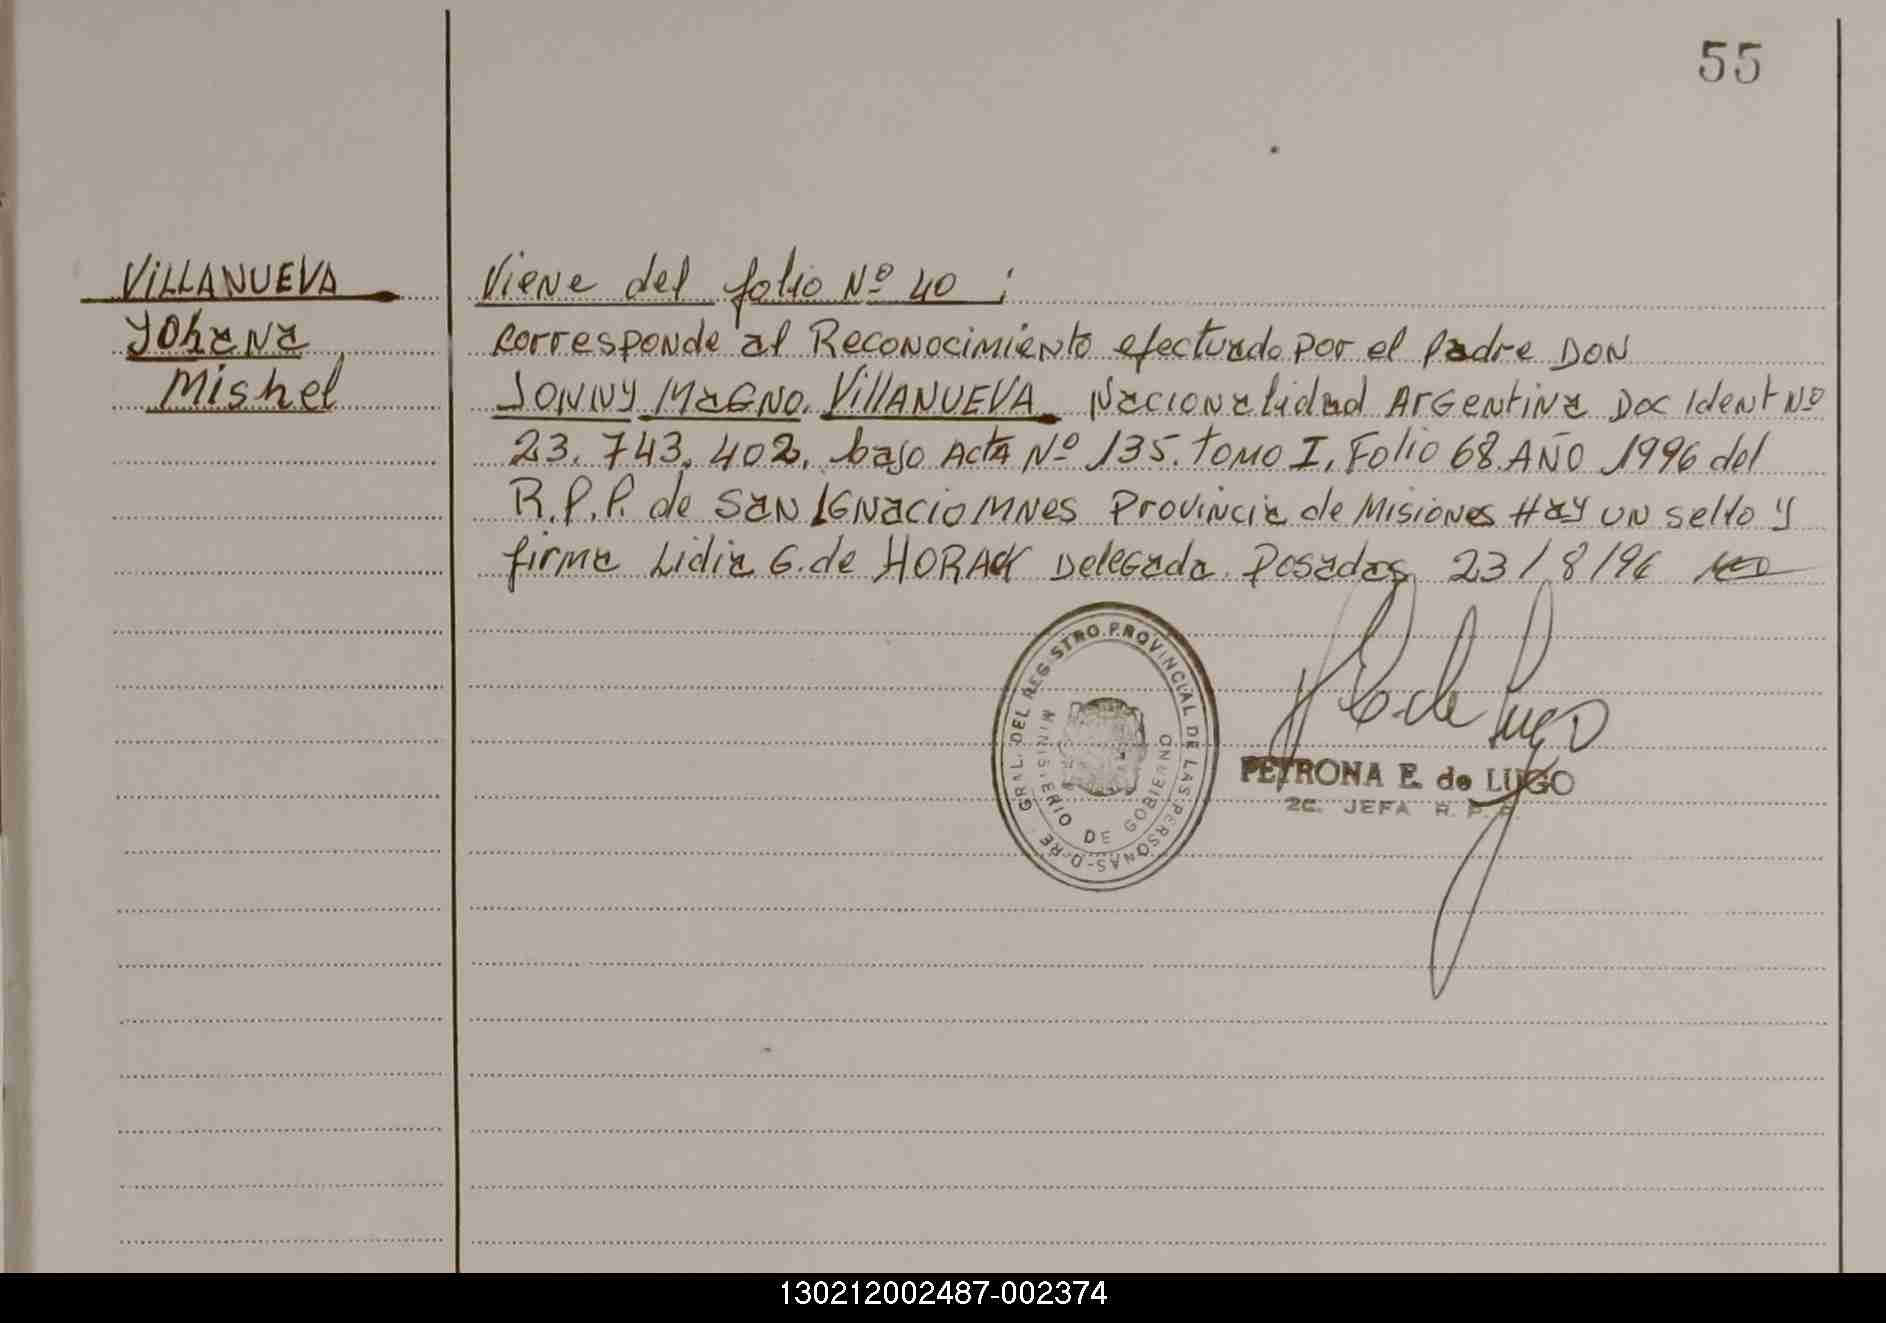 55
VILLANUEVA
Yohana
Mishel
Viene del folio Nº 40 :
corresponde al Reconocimiento efectuado por el padre DON
JONNY MAGNO VILLANUEVA Nacionalidad Argentina Doc Ident Nº
23.743.402, bajo Acta Nº 135. tomo I, Folio 68 AÑO 1996 del
R.P.P. de SAN IGNACIO MNES Provincia de Misiones Hay un sello y
firma Lidia G. de HORACK Delegada. Posadas 23/8/96
GRAL. DEL REGISTRO PROVINCIAL DE LAS PERSONAS
MINISTERIO DE GOBIERNO
E. de Lugo
PETRONA E. de LUGO
JEFA R. P. P.
130212002487-002374